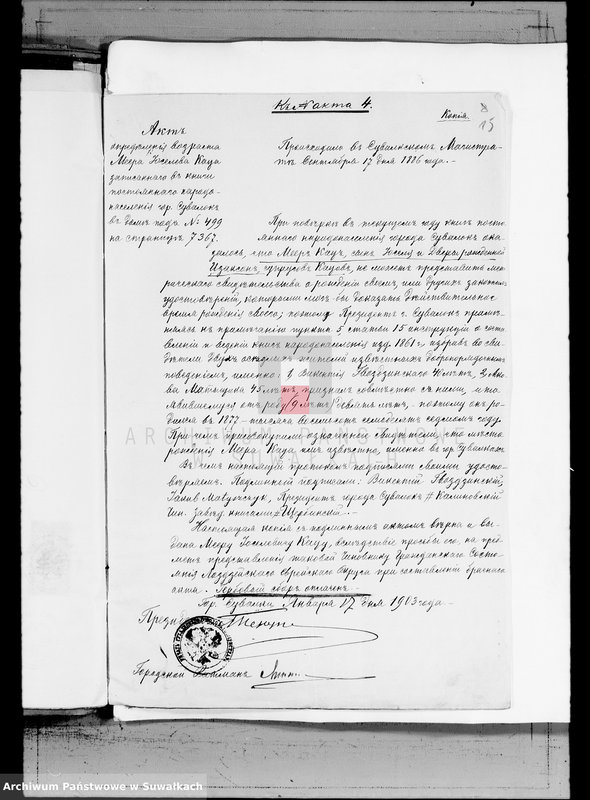 Къ № акта 4.
Копія
15
Актъ
опредѣленія возраста
Меера Іоселева Каца
записаннаго въ книги
постояннаго народо-
населенія гор. Сувалокъ
въ домъ подъ № 499
на страницѣ 7367.
Происходило въ Сувалкскомъ Магистра-
тѣ Сентября 17 дня 1886 года.-
При повѣркѣ въ текущемъ году книгъ посто-
яннаго народонаселенія города Сувалокъ ока-
залось, что Мееръ Кацъ, сынъ Іосель и Двера рожденной
Изаксонъ, супруговъ Кацовъ, не можетъ представить ме-
рическаго свидѣтельства о рожденіи своемъ, или другихъ законныхъ
удостовѣреній, которыми могъ бы доказать дѣйствительное
время рожденія своего; поэтому Президентъ г. Сувалокъ
на примѣчаніи пункта 5 статьи 15 инструкціи о соста-
вленіи и веденіи книгъ народонаселенія изд. 1861 г. избравъ во сви-
дѣтели двухъ осѣдлыхъ жителей извѣстныхъ добропорядочнымъ
поведеніемъ, именно: 1, Викентія Гвоздзинскаго 40 лѣтъ, 2,
45 лѣтъ, призналъ совмѣстно съ ними, что
явившемуся отъ роду /9 лѣтъ/ девять лѣтъ, - поэтому онъ ро-
дился въ 1877 - тысяча восемьсотъ семьдесятъ седьмомъ году.
При чемъ присовокупили означенные свидѣтели, что мѣсто
рожденія Меера Каца имъ извѣстно, именно въ гор. Сувалкахъ
Въ чемъ настоящій протоколъ подписями своими удосто-
вѣряемъ. Подлинный подписали: Викентій Гвоздзинскій,
Президентъ города Сувалокъ # Калиновскій
Чин. Завѣд. книгами #
Настоящая копія съ подлиннымъ актомъ вѣрна и вы-
дана Мееру Іоселевичу Кацу, вслѣдствіе просьбы его, на пред-
метъ представленія таковой Чиновнику Гражданскаго Состо-
янія Лоздзейскаго Еврейскаго Округа при составленіи брачнаго
акта. Гербовый сборъ оплаченъ
Гор. Сувалки Января 17 дня 1913 года.-
Городской
ARCHIWUM PAŃSTWOWE
W SUWAŁKACH
Archiwum Państwowe w Suwałkach